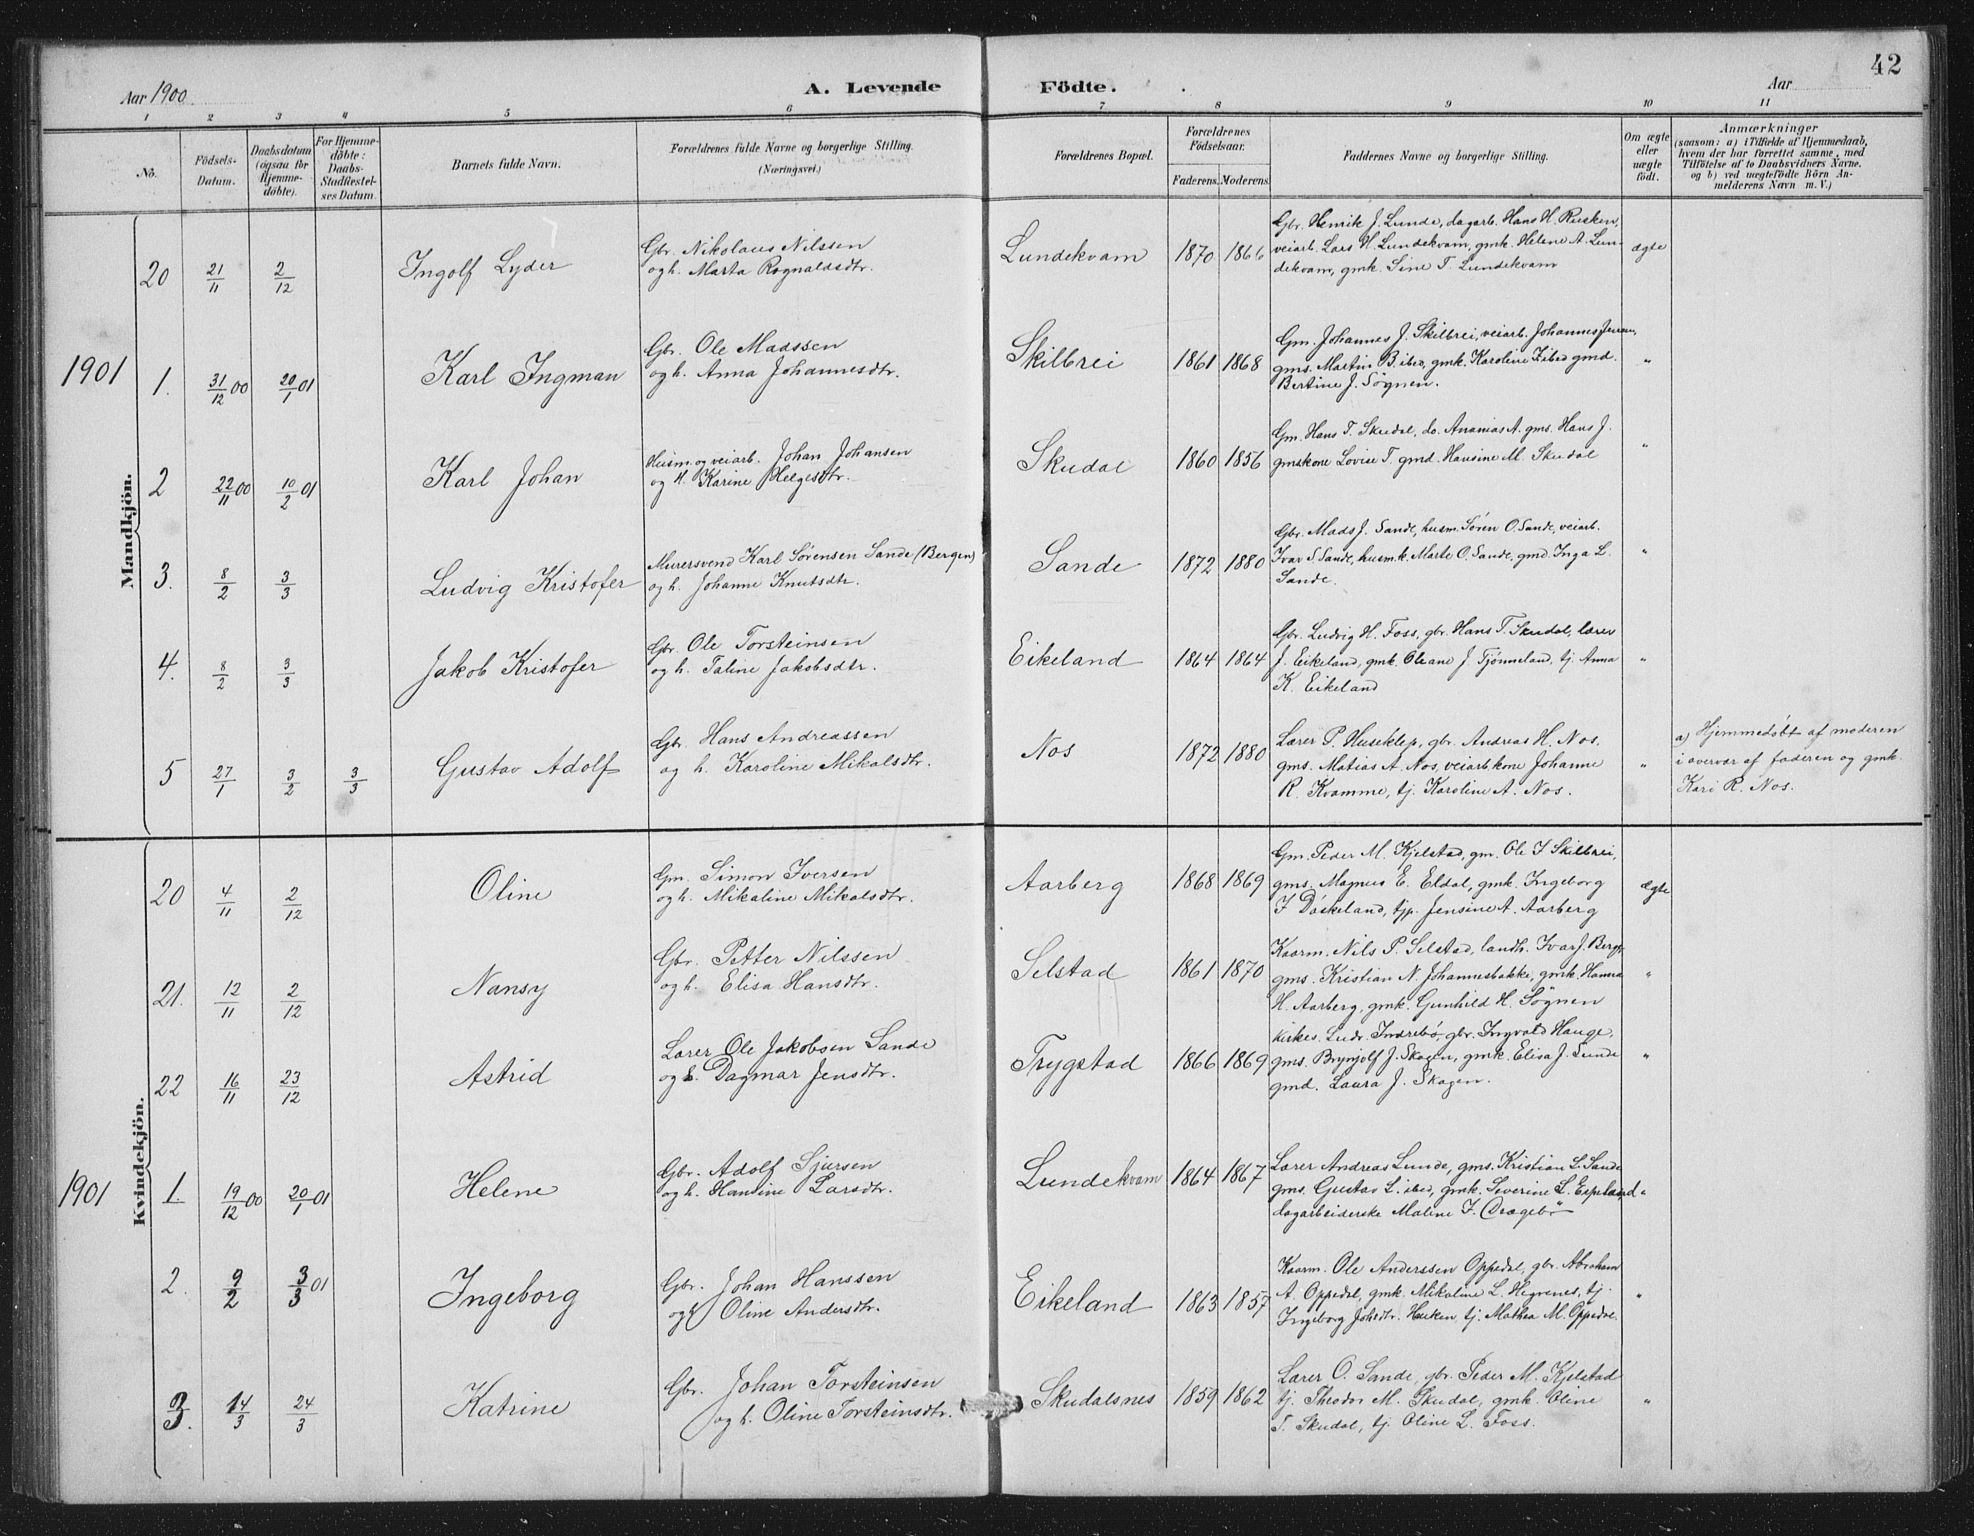 42
Aar 1900. A. Levende Födte. Aar
1 2 3 4 5 6 7 8 9 10 11
No. Födsels-Datum. Daabsdatum (ogsaa for Hjemme-döbte). For Hjemme-döbte: Daabs-Stadfæstel-ses Datum. Barnets fulde Navn. Forældrenes fulde Navne og borgerlige Stilling. (Næringsvei.) Forældrenes Bopæl. Forældrenes Födselsaar. Faderens. Moderens. Faddernes Navne og borgerlige Stilling. Om ægte eller uægte födt. Anmærkninger
(saasom: a) i Tilfælde af Hjemmedaab,
hvem der har forrettet samme, med
Tilföielse af to Daabsvidners Navne.
og b) ved uægtefödte Börn An-
melderens Navn m. V.)
Mandkjön.
20 21/11 2/12 Ingolf Lyder Gbr. Nikolaus Nilssen
og h. Marta Rognaldsdtr. Lundekvam 1870 1866 Gbr. Henrik J. Lunde, dagarb. Hans H. Rusken,
veiarb. Lars H. Lundekvam, gmk. Helene A. Lun-
dekvam, gmk. Sine T. Lundekvam ægte
1901
1. 31/12 00 20/1 01 Karl Ingman Gbr. Ole Madssen
og h. Anna Johannesdtr. Skilbrei 1861 1868 Gm. Johannes J. Skilbrei, veiarb. Johannes Jensen,
gms. Martin B. ibed, gmk. Karoline I. ibed gmd.
Bertine J. Sögnen. "
2 22/11 00 10/2 01 Karl Johan Husm. og veiarb. Johan Johansen
og H. Karine Helgesdtr. Skudal 1860 1856 Gm. Hans T. Skudal, do. Ananias A. gms. Hans J.
gmskone Lovise T. gmd. Hansine M. Skudal "
3. 8/2 3/3 Ludvig Kristofer Murersvend Karl Sørensen Sande (Bergen)
og h. Johanne Knutsdtr. Sande 1872 1880 Gbr. Mads J. Sande, husm. Sören O. Sande, veiarb.
Ivar S. Sande, husmk. Marte O. Sande, gmd. Inga L.
Sande. "
4. 8/2 3/3 Jakob Kristofer Gbr. Ole Torsteinsen
og h. Taline Jakobsdtr. Eikeland 1864 1864 Gbr. Ludvig H. Foss, gbr. Hans T. Skudal, lærer
J. Eikeland, gmk. Oleane J. Tjönneland, tj. Anna
K. Eikeland "
5 27/1 3/2 3/3 Gustav Adolf Gbr. Hans Andreassen
og h. Karoline Mikalsdtr. Nos 1872 1880 Lærer P. Huseklep, gbr. Andreas H. Nos,
gms. Matias A. Nos, veiarb.kone Johanne
R. Kvamme, tj. Karoline A. Nos. " a) Hjemmedöbt af moderen
i overvær af faderen og gmk.
Kari R. Nos.
Kvindekjön.
20 4/11 2/12 Oline Gm. Simon Iversen
og h. Mikaline Mikalsdtr. Aarberg 1868 1869 Gm. Peder M. Kjelstad, gm. Ole I Skilbrei,
gms. Magnus E. Eldal, gmk. Ingeborg
I Döskeland, tjp. Jensine A. Aarberg ægte
21. 12/11 2/12 Nansy Gbr. Petter Nilssen
og h. Elisa Hansdtr. Selstad 1861 1870 Kaarm. Nils P. Selstad, landh. Ivar J. Berg,
gms. Kristian N. Johannesbakke, gmk. Hanna
H. Aarberg, gmk. Gunhild H. Sögnen "
22 16/11 23/12 Astrid Lærer Ole Jakobsen Sande
og h. Dagmar Jensdtr. Trygstad 1866 1869 Kirkes. Ludv. Indrebö, gbr. Ingvald Hauge,
gms. Brynjolf J. Skogen, gmk. Elisa J. Sunde
gmd. Laura J. Skogen. "
1901
1. 19/12 00 20/1 01 Helene Gbr. Adolf Sjursen
og h. Hansine Larsdtr. Lundekvam 1864 1867 Lærer Andreas Lunde, gms. Kristian L. Sande
gms. Gustav L. ibed, gmk. Severine L. Espeland
dagarbeiderske Maline I. Dragebö "
2. 9/2 3/3 01 Ingeborg Gbr. Johan Hanssen
og h Oline Andersdtr. Eikeland 1863 1857 Kaarm. Ole Anderssen Oppedal, gbr. Abraham
A. Oppedal, gmk. Mikaline L. Hegrenes, tj.
Ingeborg Johsdtr. tj. Mathea M. Oppedal. "
3. 14/3 24/3 Katrine Gbr. Johan Torsteinsen
og h. Oline Torsteinsdtr. Skudalsnes 1859 1862 Lærer O. Sande, gbr. Peder M. Kjelstad
tj. Theodor M. Skudal, gmk. Oline
T. Skudal, tj. Oline L. Foss. "